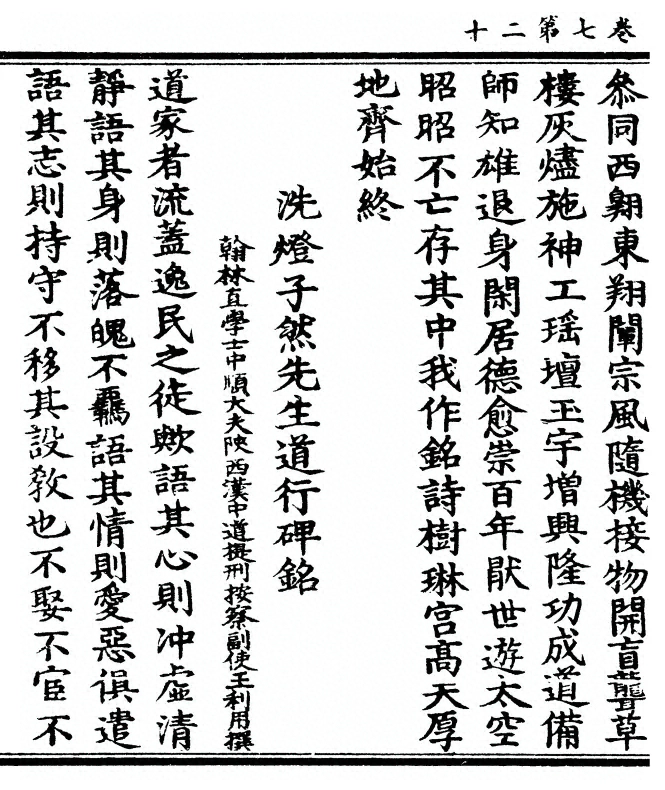 卷七第二十
叅同西翺東翔闡宗風隨機接物開盲聾草
樓灰燼施神工瑶壇玉宇增興隆功成道備
師知雄退身閑居德愈崇百年厭世遊太空
昭昭不亡存其中我作銘詩樹琳宫高天厚
地齊始終
洗燈子然先生道行碑銘
翰林直學士中順大夫陝西漢中道提刑按察副使王利用撰
道家者流蓋逸民之徒歟語其心則冲虚清
靜語其身則落魄不羈語其情則愛惡俱遣
語其志則持守不移其設敎也不娶不宦不